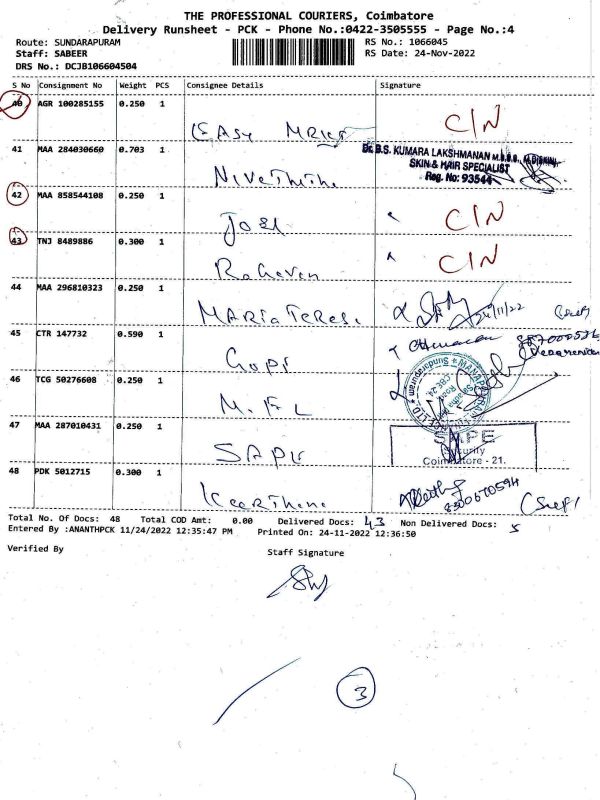 THE PROFESSIONAL COURIERS, Coimbatore
Delivery Runsheet - PCK - Phone No.:0422-3505555 - Page No.:4
Route: SUNDARAPURAM
Staff: SABEER
DRS No.: DCJB106604504
RS No.: 1066045
RS Date: 24-Nov-2022
S No Consignment No Weight PCS Consignee Details Signature
40 AGR 100285155 0.250 1 EASY C/N
41 MAA 284030660 0.703 1
Dr. B.S. KUMARA LAKSHMANAN M.B.B.S., M.D(SKIN),
SKIN & HAIR SPECIALIST
Reg. No: 93544
42 MAA 858544108 0.250 1 Joel C/N
43 TNJ 8489886 0.300 1 Raheven C/N
44 MAA 296810323 0.250 1 MARIA TERESA 24/11/22
45 CTR 147732 0.590 1 Gopi
46 TCG 50276608 0.250 1 M.FL
47 MAA 287010431 0.250 1
Security
Coimbatore - 21.
48 PDK 5012715 0.300 1 Keerthana
Total No. Of Docs: 48 Total COD Amt: 0.00 Delivered Docs: 43 Non Delivered Docs: 5
Entered By :ANANTHPCK 11/24/2022 12:35:47 PM Printed On: 24-11-2022 12:36:50
Verified By Staff Signature
3